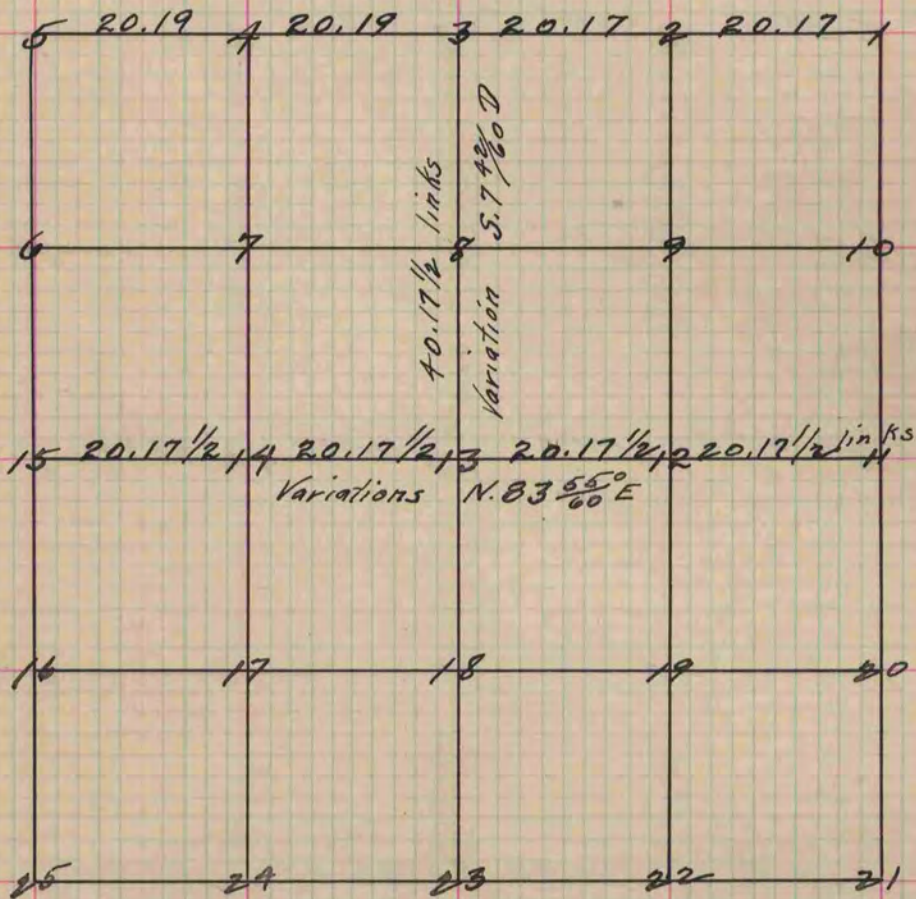 5 20.19 4 20.19 3 20.17 2 20.17 1
40.17 1/2 links
Variation S.7 42/60 D
6 7 8 9 10
15 20.17 1/2 14 20.17 1/2 13 20.17 1/2 12 20.17 1/2 links 11
Variations N.83 55°/60 E
16 17 18 19 20
25 24 23 22 21